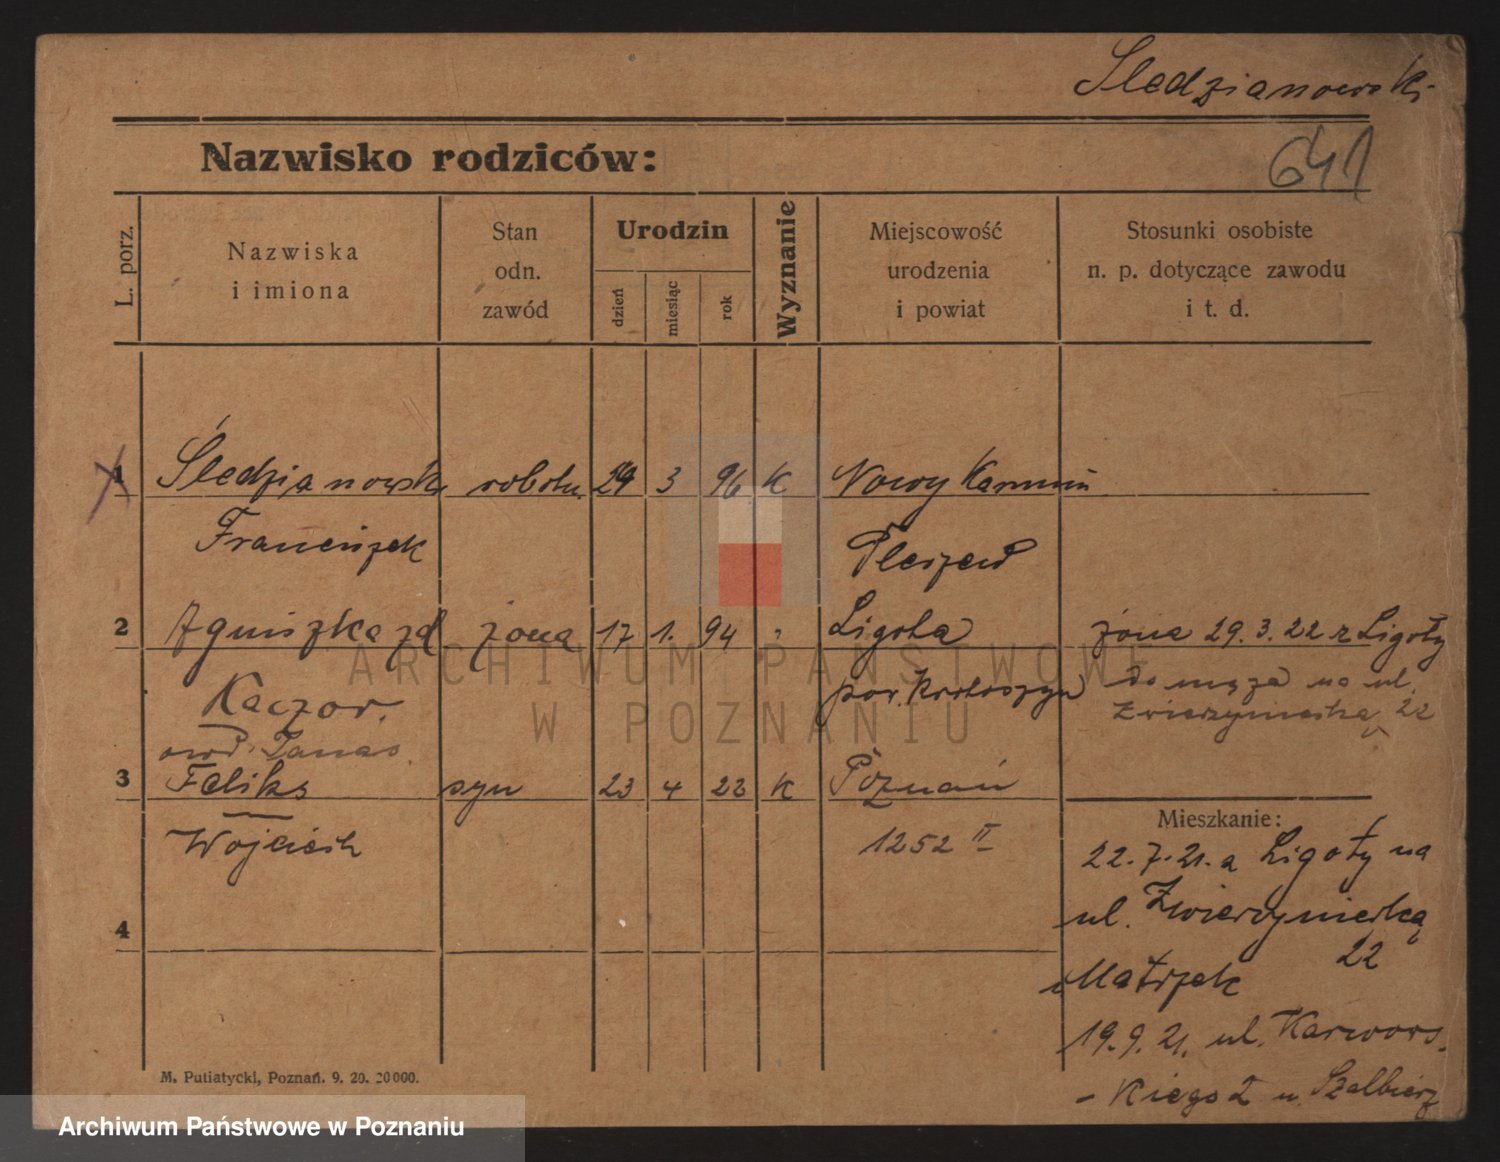 Sledzianowski
Nazwisko rodziców:
641
L. porz.
Nazwiska
i imiona
Stan
odn.
zawód
Urodzin
dzień
miesiąc
rok
Wyznanie
Miejscowość
urodzenia
i powiat
Stosunki osobiste
n. p. dotyczące zawodu
i t. d.
1 Śledzianowski robotn. 29 3 96 K Nowy Karmin
Franciszek Pleszew
2 Agniszka zd żona 17 1. 94 " Ligota żona 29.3.22 z Ligoty
Kaczor. pow. Krotoszyn do męża na ul.
Zwierzyniecką 22
owd. Panas
3 Feliks syn 23 4 22 K Poznań
Wojciech 1252 II
Mieszkanie:
22.7.21. a Ligoty na
ul. Zwierzyniecką
22
Matysek
19.9.21. ul. Karwows-
kiego 2 u. Szalbierz
4
M. Putiatycki, Poznań. 9. 20. 20000.
ARCHIWUM PAŃSTWOWE
W POZNANIU
Archiwum Państwowe w Poznaniu